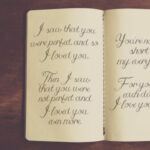 I saw that you
were perfect, and so
I loved you.
Then I saw
that you were
not perfect and
I loved you
even more.
You're no
short
my every
For yo
each da
I love yo